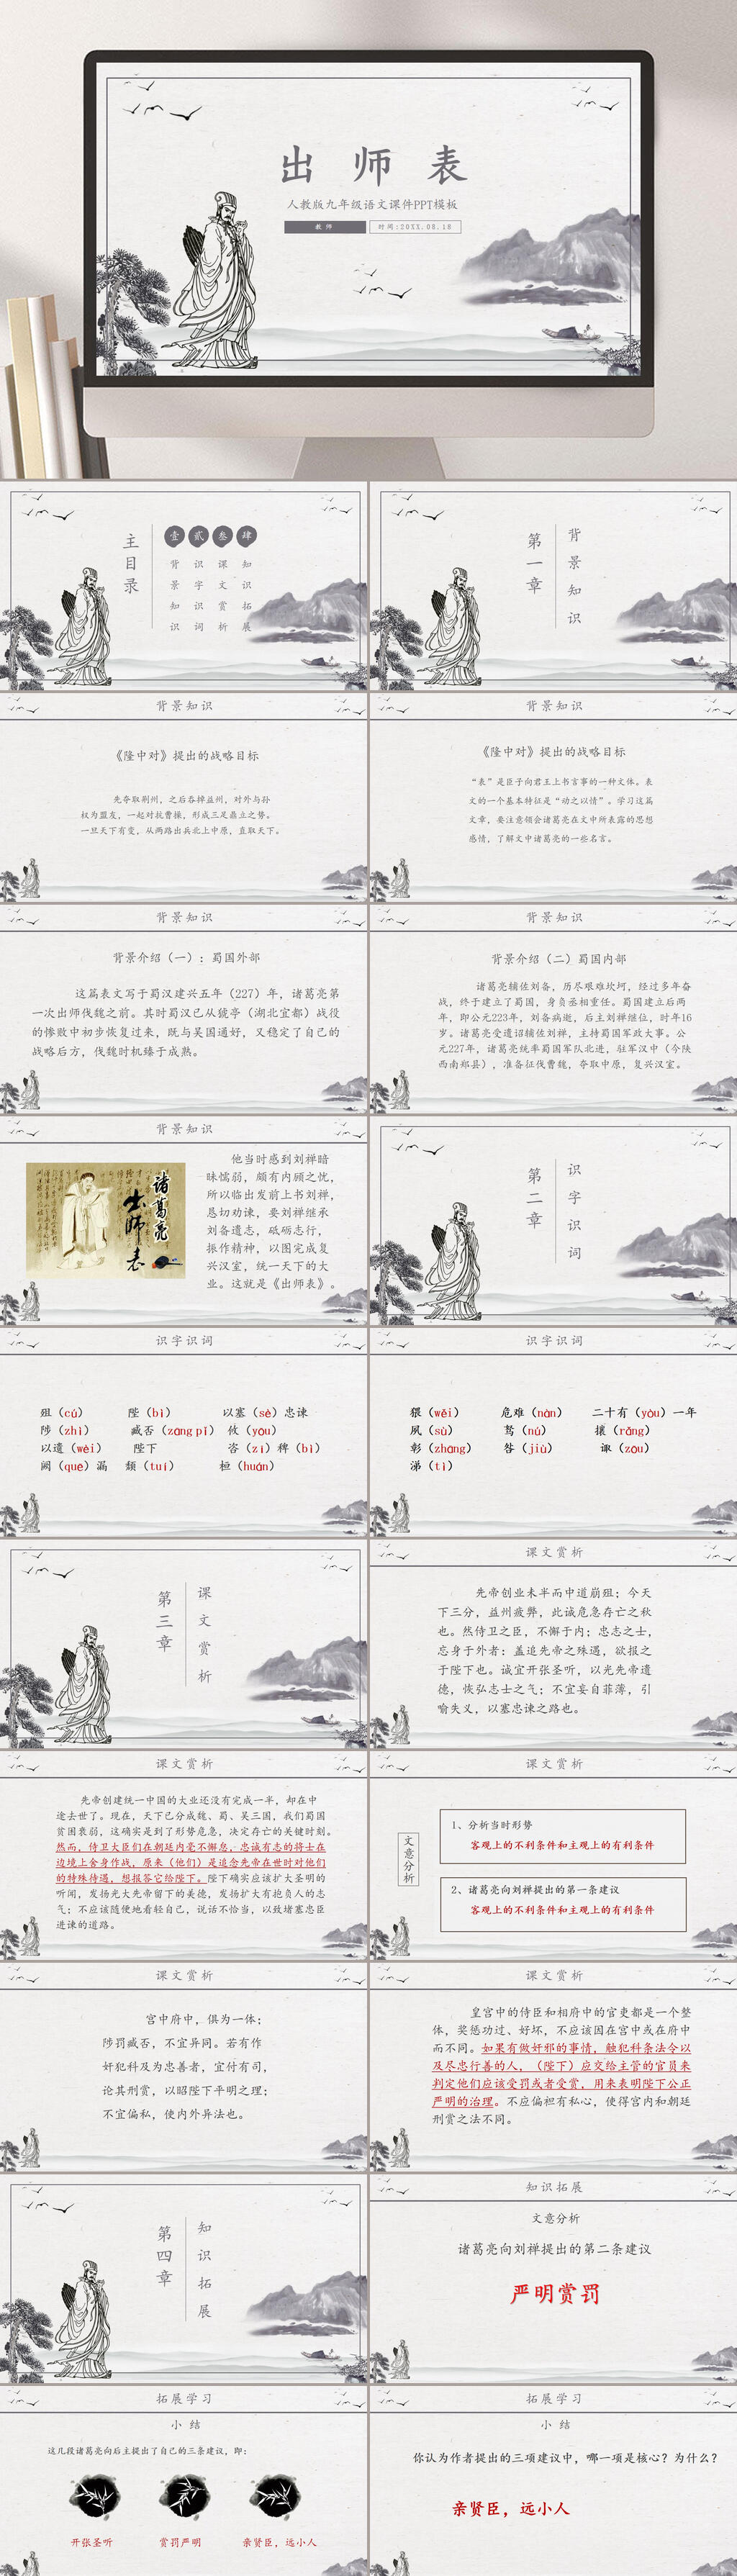 出师表
人教版九年级语文课件PPT模板
教师
时间:20XX.08.18
主目录
壹 背景知识
贰 识字识词
叁 课文赏析
肆 知识拓展
第一章
背景知识
背景知识
《隆中对》提出的战略目标
先夺取荆州，之后吞掉益州，对外与孙
权为盟友，一起对抗曹操，形成三足鼎立之势。
一旦天下有变，从两路出兵北上中原，直取天下。
背景知识
《隆中对》提出的战略目标
“表”是臣子向君王上书言事的一种文体。表
文的一个基本特征是“动之以情”。学习这篇
文章，要注意领会诸葛亮在文中所表露的思想
感情，了解文中诸葛亮的一些名言。
背景知识
背景介绍（一）：蜀国外部
这篇表文写于蜀汉建兴五年（227）年，诸葛亮第
一次出师伐魏之前。其时蜀汉已从猇亭（湖北宜都）战役
的惨败中初步恢复过来，既与吴国通好，又稳定了自己的
战略后方，伐魏时机臻于成熟。
背景知识
背景介绍（二）蜀国内部
诸葛亮辅佐刘备，历尽艰难坎坷，经过多年奋
战，终于建立了蜀国，身负丞相重任。蜀国建立后两
年，即公元223年，刘备病逝，后主刘禅继位，时年16
岁。诸葛亮受遗诏辅佐刘禅，主持蜀国军政大事。公
元227年，诸葛亮统率蜀国军队北进，驻军汉中（今陕
西南郑县），准备征伐曹魏，夺取中原，复兴汉室。
背景知识
诸葛亮
出师表
他当时感到刘禅暗
昧懦弱，颇有内顾之忧，
所以临出发前上书刘禅，
恳切劝谏，要刘禅继承
刘备遗志，砥砺志行，
振作精神，以图完成复
兴汉室，统一天下的大
业。这就是《出师表》。
第二章
识字识词
识字识词
殂（cú） 陛（bì） 以塞（sè）忠谏
陟（zhì） 臧否（zāng pǐ） 攸（yōu）
以遗（wèi） 陛下 咨（zī）稗（bì）
阙（quē）漏 颓（tuí） 桓（huán）
识字识词
猥（wěi） 危难（nàn） 二十有（yòu）一年
夙（sù） 驽（nú） 攘（rǎng）
彰（zhāng） 咎（jiù） 诹（zōu）
涕（tì）
第三章
课文赏析
课文赏析
先帝创业未半而中道崩殂；今天
下三分，益州疲弊，此诚危急存亡之秋
也。然侍卫之臣，不懈于内；忠志之士，
忘身于外者：盖追先帝之殊遇，欲报之
于陛下也。诚宜开张圣听，以光先帝遗
德，恢弘志士之气；不宜妄自菲薄，引
喻失义，以塞忠谏之路也。
课文赏析
先帝创建统一中国的大业还没有完成一半，却在中
途去世了。现在，天下已分成魏、蜀、吴三国，我们蜀国
贫困衰弱，这确实是到了形势危急，决定存亡的关键时刻。
然而，侍卫大臣们在朝廷内毫不懈怠，忠诚有志的将士在
边境上舍身作战，原来（他们）是追念先帝在世时对他们
的特殊待遇，想报答它给陛下。陛下确实应该扩大圣明的
听闻，发扬光大先帝留下的美德，发扬扩大有抱负人的志
气；不应该随便地看轻自己，说话不恰当，以致堵塞忠臣
进谏的道路。
课文赏析
文意分析
1、分析当时形势
客观上的不利条件和主观上的有利条件
2、诸葛亮向刘禅提出的第一条建议
客观上的不利条件和主观上的有利条件
课文赏析
宫中府中，俱为一体；
陟罚臧否，不宜异同。若有作
奸犯科及为忠善者，宜付有司，
论其刑赏，以昭陛下平明之理；
不宜偏私，使内外异法也。
课文赏析
皇宫中的侍臣和相府中的官吏都是一个整
体，奖惩功过、好坏，不应该因在宫中或在府中
而不同。如果有做奸邪的事情，触犯科条法令以
及尽忠行善的人，（陛下）应交给主管的官员来
判定他们应该受罚或者受赏，用来表明陛下公正
严明的治理。不应偏袒有私心，使得宫内和朝廷
刑赏之法不同。
第四章
知识拓展
知识拓展
文意分析
诸葛亮向刘禅提出的第二条建议
严明赏罚
拓展学习
小 结
这几段诸葛亮向后主提出了自己的三条建议，即：
开张圣听 赏罚严明 亲贤臣，远小人
拓展学习
小 结
你认为作者提出的三项建议中，哪一项是核心？为什么？
亲贤臣，远小人